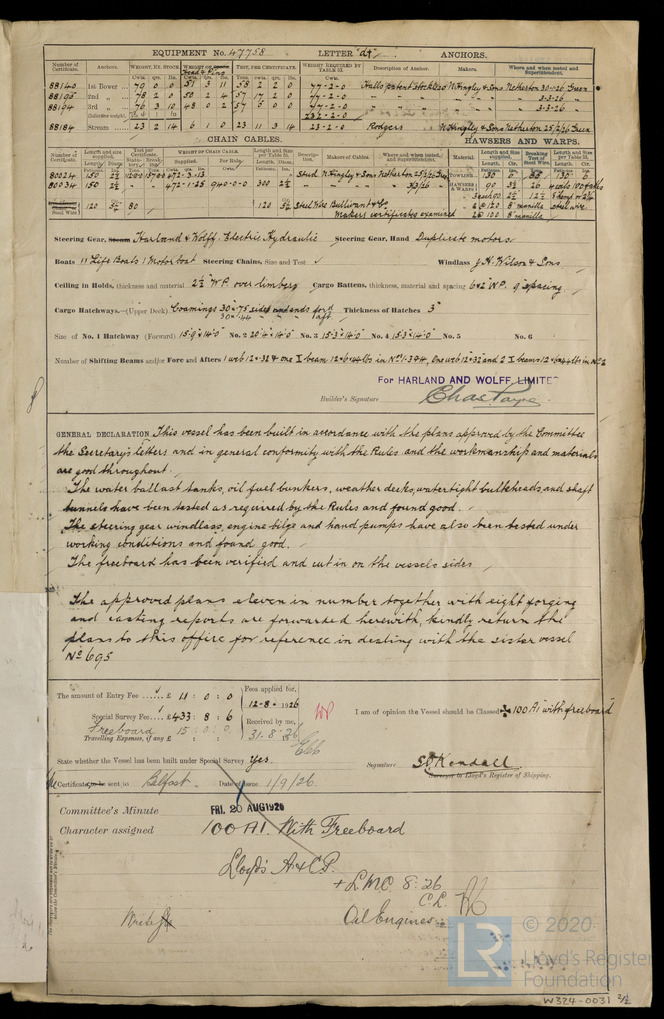 EQUIPMENT No. 47758 LETTER "d†" ANCHORS.
Number of Certificate. Anchors. WEIGHT, EX. STOCK. WEIGHT OF Head & Pins TEST, PER CERTIFICATE. WEIGHT REQUIRED BY TABLE 53. Description of Anchor. Makers. Where and when tested and Superintendent.
88140 1st Bower 79 0 0 51 3 11 58 2 2 0 77-2-0 Halls patent stockless N. Hingley & Sons Netherton 30-1-26 Green
88195 2nd " 78 2 0 50 2 4 57 17 2 0 77-2-0 " " " " " 3-3-26 "
88194 3rd " 76 3 10 48 0 2 57 5 0 0 77-2-0 " " " " " 3-3-26 "
Collective weight 232-2-0
88184 Stream 23 2 14 6 1 0 23 11 3 14 23-2-0 Rodgers N. Hingley & Sons Netherton 25/2/26 Green
CHAIN CABLES. HAWSERS AND WARPS.
Number of Certificate. Length and size supplied. Test per Certificate. WEIGHT OF CHAIN CABLE. Length and size per Table 53. Description. Makers of Cables. Where and when tested and Superintendent. Material. Length and size supplied. Breaking Test of Steel Wire. Length and size per Table 53.
Supplied. Per Rule.
80024 150 472-3-13 Stud N. Hingley & Sons Netherton 25/2/26 Green TOWLINE 130
80034 150 472-1-25 940-0-0 300 " " " 3/3/26 " HAWSERS & WARPS 90 26 4 cabs 100 faths
Steel Wire 120 80 120 Steel Wire Bullivant & Co. 2 @ 120 8" manilla steel wire
Makers certificates examined 2 @ 100 8" manilla
Steering Gear, Steam Harland & Wolff, Electric Hydraulic Steering Gear, Hand Duplicate motors
Boats 11 Life Boats 1 Motor boat Steering Chains, Size and Test ✓ Windlass J. H. Wilson & Sons
Ceiling in Holds, thickness and material 2½" W.P. over limbers Cargo Battens, thickness, material and spacing 6x2 W.P. 9" spacing.
Cargo Hatchways.—(Upper Deck) Coamings 30 x .75 sides and ends ford 30 x .44 aft Thickness of Hatches 3"
Size of No. 1 Hatchway (Forward) 15'9" x 14'0" No. 2 20'4" x 14'0" No. 3 15'3" x 14'0" No. 4 15'3" x 14'0" No. 5 No. 6
Number of Shifting Beams and/or Fore and Afters 1 web 12 x .32 & one I beam 12 x 6 x 44 lbs in Nos 1.3 & 4, One web 12 x .32 and 2 I beams 12 x 6 x 44 lbs in No 2
For HARLAND AND WOLFF, LIMITED
Builder's Signature Chas Payne
GENERAL DECLARATION This vessel has been built in accordance with the plans approved by the Committee
the Secretary's letters and in general conformity with the Rules and the workmanship and materials
are good throughout.
The water ballast tanks, oil fuel bunkers, weather decks, watertight bulkheads, and shaft
tunnels have been tested as required by the Rules and found good.
The steering gear windlass, engine bilge and hand pumps have also been tested under
working conditions and found good.
The freeboard has been verified and cut in on the vessels sides
The approved plans eleven in number together with eight forging
and casting reports are forwarded herewith, kindly return the
plans to this office for reference in dealing with the sister vessel
No 695
The amount of Entry Fee £ 11 : 0 : 0 Fees applied for, 12-8-1926
Special Survey Fee £ 433 : 8 : 6
Freeboard 15 : 0 : 0 Received by me, 31.8.26
Travelling Expenses, if any £ : :
I am of opinion the Vessel should be Classed ✠ 100 A1 with freeboard
State whether the Vessel has been built under Special Survey Yes. Signature S. D. Kendall
Surveyor to Lloyd's Register of Shipping.
Certificate to be sent to Belfast. Date of issue 1/9/26.
Committee's Minute FRI. 20 AUG 1926
Character assigned 100 A1. With Freeboard
Lloyd's A & C P.
+ LMC 8.26
C.L.
Oil Engines
Write
© 2020
LR Lloyd's Register
Foundation
W324-0031 2/2